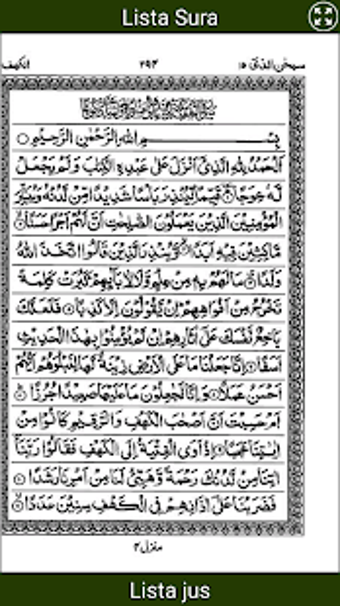 Lista Sura
سبحن الذی ۱۵ ۲۹۴ الكهف
بِسْمِ اللّٰهِ الرَّحْمٰنِ الرَّحِیْمِ
اَلْحَمْدُ لِلّٰهِ الَّذِیْۤ اَنْزَلَ عَلٰى عَبْدِهِ الْكِتٰبَ وَلَمْ یَجْعَلْ
لَّهٗ عِوَجًا ۝ قَیِّمًا لِّیُنْذِرَ بَاْسًا شَدِیْدًا مِّنْ لَّدُنْهُ وَیُبَشِّرَ
الْمُؤْمِنِیْنَ الَّذِیْنَ یَعْمَلُوْنَ الصّٰلِحٰتِ اَنَّ لَهُمْ اَجْرًا حَسَنًا ۝
مَّاكِثِیْنَ فِیْهِ اَبَدًا ۝ وَّیُنْذِرَ الَّذِیْنَ قَالُوا اتَّخَذَ اللّٰهُ
وَلَدًا ۝ مَا لَهُمْ بِهٖ مِنْ عِلْمٍ وَّلَا لِاٰبَآئِهِمْ كَبُرَتْ كَلِمَةً
تَخْرُجُ مِنْ اَفْوَاهِهِمْ اِنْ یَّقُوْلُوْنَ اِلَّا كَذِبًا ۝ فَلَعَلَّكَ
بَاخِعٌ نَّفْسَكَ عَلٰۤى اٰثَارِهِمْ اِنْ لَّمْ یُؤْمِنُوْا بِهٰذَا الْحَدِیْثِ
اَسَفًا ۝ اِنَّا جَعَلْنَا مَا عَلَى الْاَرْضِ زِیْنَةً لَّهَا لِنَبْلُوَهُمْ اَیُّهُمْ
اَحْسَنُ عَمَلًا ۝ وَاِنَّا لَجٰعِلُوْنَ مَا عَلَیْهَا صَعِیْدًا جُرُزًا ۝
اَمْ حَسِبْتَ اَنَّ اَصْحٰبَ الْكَهْفِ وَالرَّقِیْمِ كَانُوْا مِنْ
اٰیٰتِنَا عَجَبًا ۝ اِذْ اَوَى الْفِتْیَةُ اِلَى الْكَهْفِ فَقَالُوْا رَبَّنَاۤ
اٰتِنَا مِنْ لَّدُنْكَ رَحْمَةً وَّهَیِّئْ لَنَا مِنْ اَمْرِنَا رَشَدًا ۝
فَضَرَبْنَا عَلٰۤى اٰذَانِهِمْ فِی الْكَهْفِ سِنِیْنَ عَدَدًا ۝
منزل ۴
Lista jus